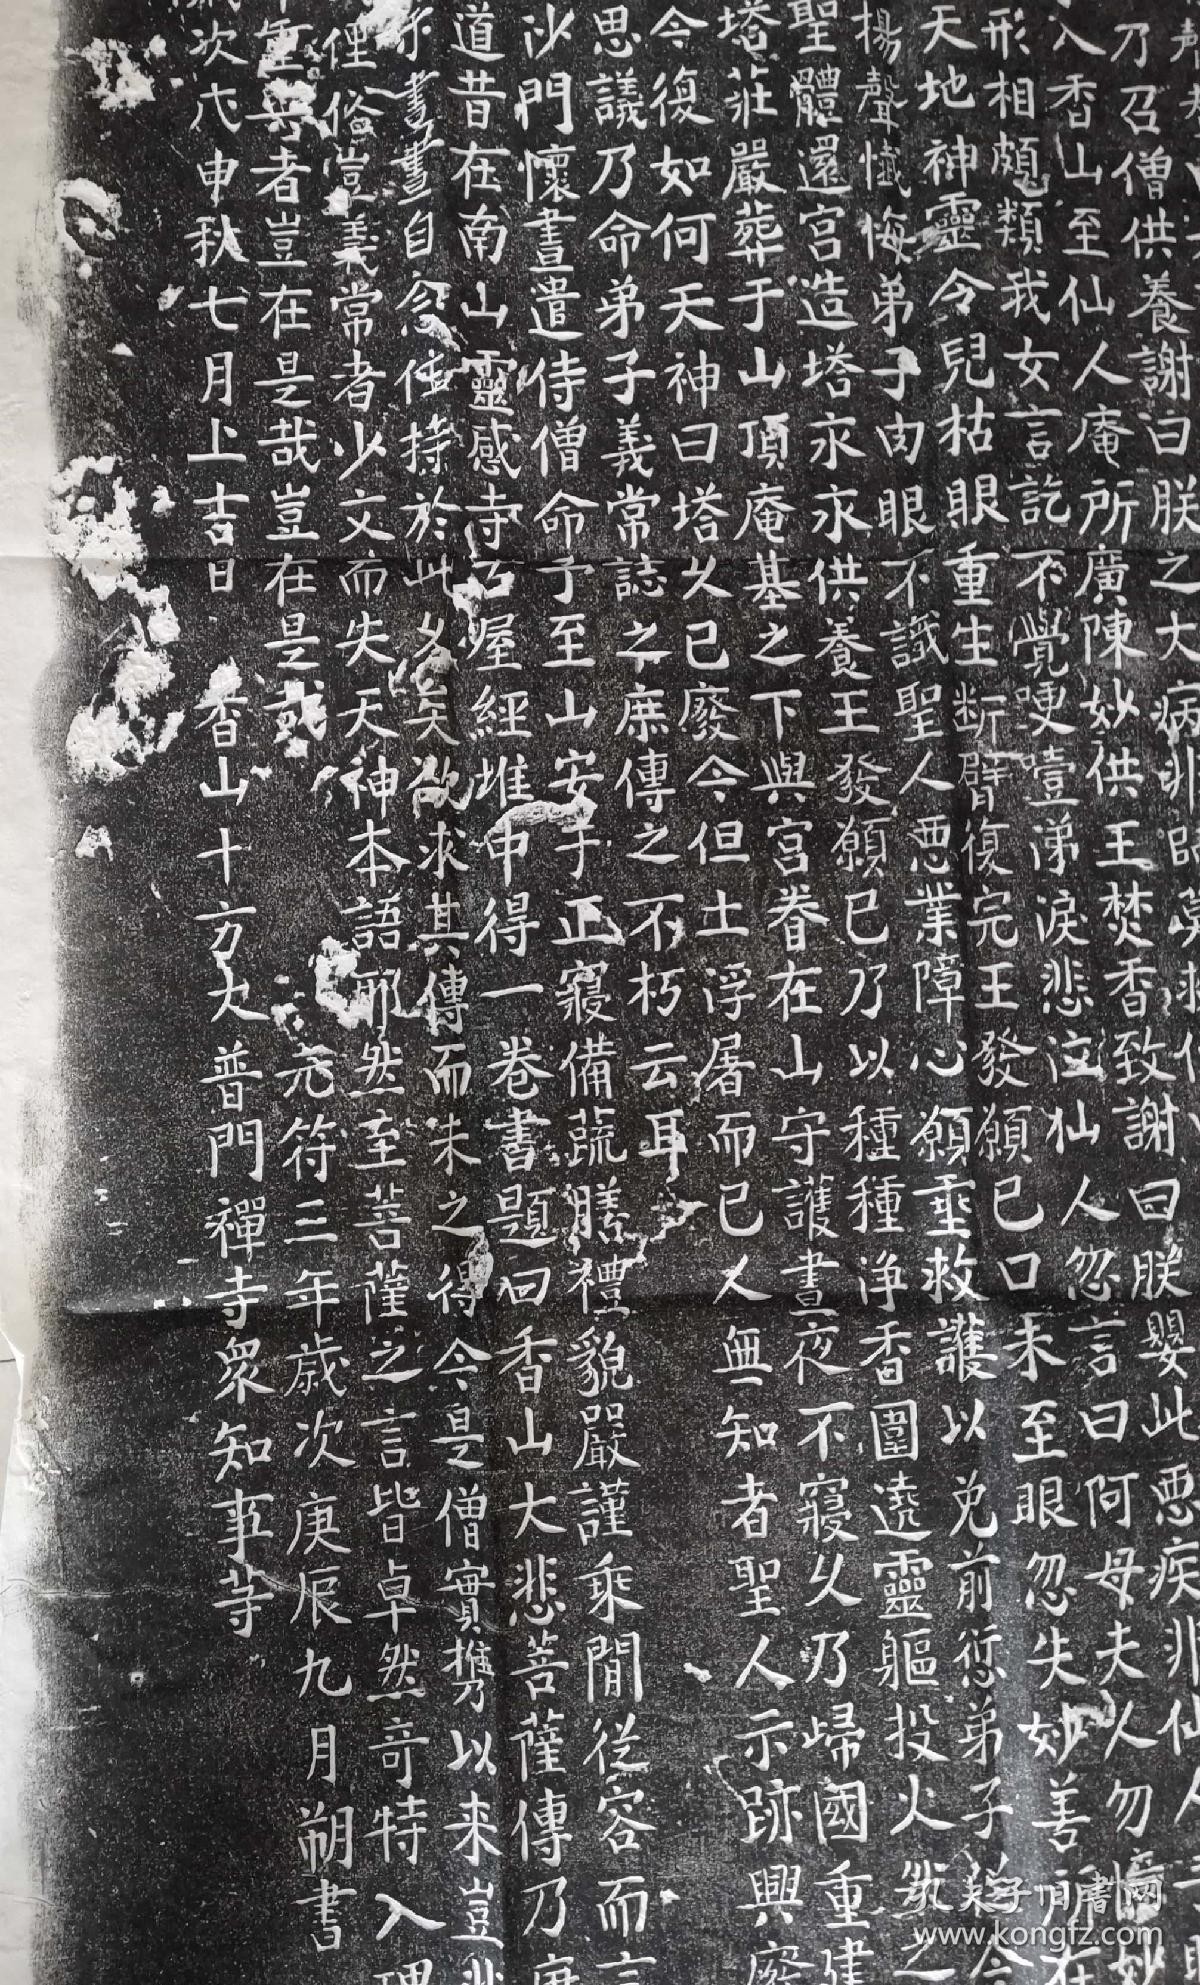 乃召僧供養謝白朕之大病非臨萬救
入香山至仙人庵所廣陳妙供王焚香致謝曰朕嬰此惡疾非仙人
形相頗類我女言訖不覺哽噎涕淚悲泣仙人忽言曰阿母夫人勿憶妙
天地神靈令兒枯眼重生斷臂復完王發願已口未至眼忽失妙善所在
揚聲懺悔弟子肉眼不識聖人惡業障心願垂救護以免前愆弟子從今
聖體還宮造塔永永供養王發願已乃以種種淨香圍遶靈軀投火然之
塔莊嚴葬于山頂庵基之下與宮眷在山守護晝夜不寢久乃歸國重建
今復如何天神曰塔久已廢今但土浮屠而已人無知者聖人示跡興廢
思議乃命弟子義常誌之庶傳之不朽云耳
沙門懷晝遣侍僧命予至山安予正寢備蔬膳禮貌嚴謹乘間從容而言
道昔在南山靈感寺古屋經堆中得一卷書題曰香山大悲菩薩傳乃唐
晝自念住持於此久矣欲求其傳而未之得今是僧實攜以來豈非
俚俗豈義常者少文而失天神本語邪然至菩薩之言皆卓然奇特入理
者豈在是哉豈在是哉 元符三年歲次庚辰九月朔書
歲次戊申秋七月上吉日 香山十方大普門禪寺眾知事等
孔夫子旧书网
www.kongfz.com